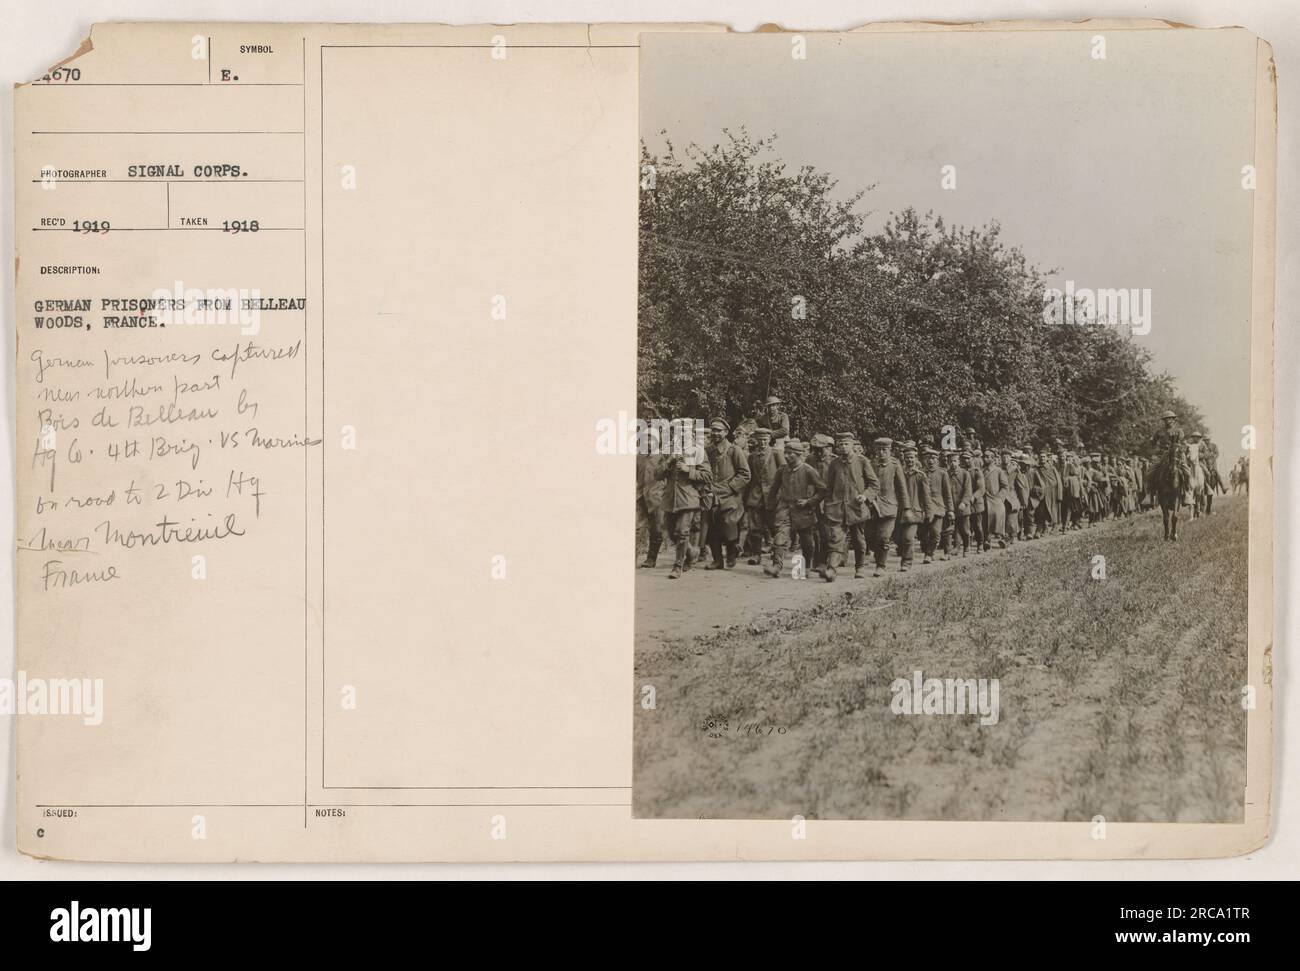 4670
SYMBOL
E.
PHOTOGRAPHER SIGNAL CORPS.
REC'D 1919
TAKEN 1918
DESCRIPTION:
GERMAN PRISONERS FROM BELLEAU
WOODS, FRANCE.
German prisoners captured
near northern part
Bois de Belleau by
Hq Co. 4th Brig. US Marines
on road to 2 Div Hq
near Montreuil
France
ISSUED:
C
NOTES:
USA
14670
alamy
a
alamy
Image ID: 2RCA1TR
www.alamy.com